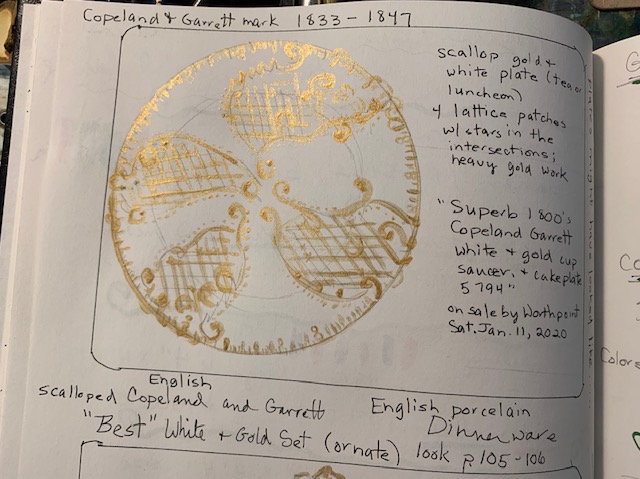 Copeland & Garrett mark 1833 - 1847
scallop gold &
white plate (tea or
luncheon)
4 lattice patches
w/ stars in the
intersections;
heavy gold work
"Superb 1800's
Copeland Garrett
white + gold cup
saucer, + cakeplate
5794"
on sale by Worthpoint
Sat. Jan. 11, 2020
English
scalloped Copeland and Garrett
English porcelain
Dinnerware
"Best" White + Gold Set (ornate) look p 105-106
Colors